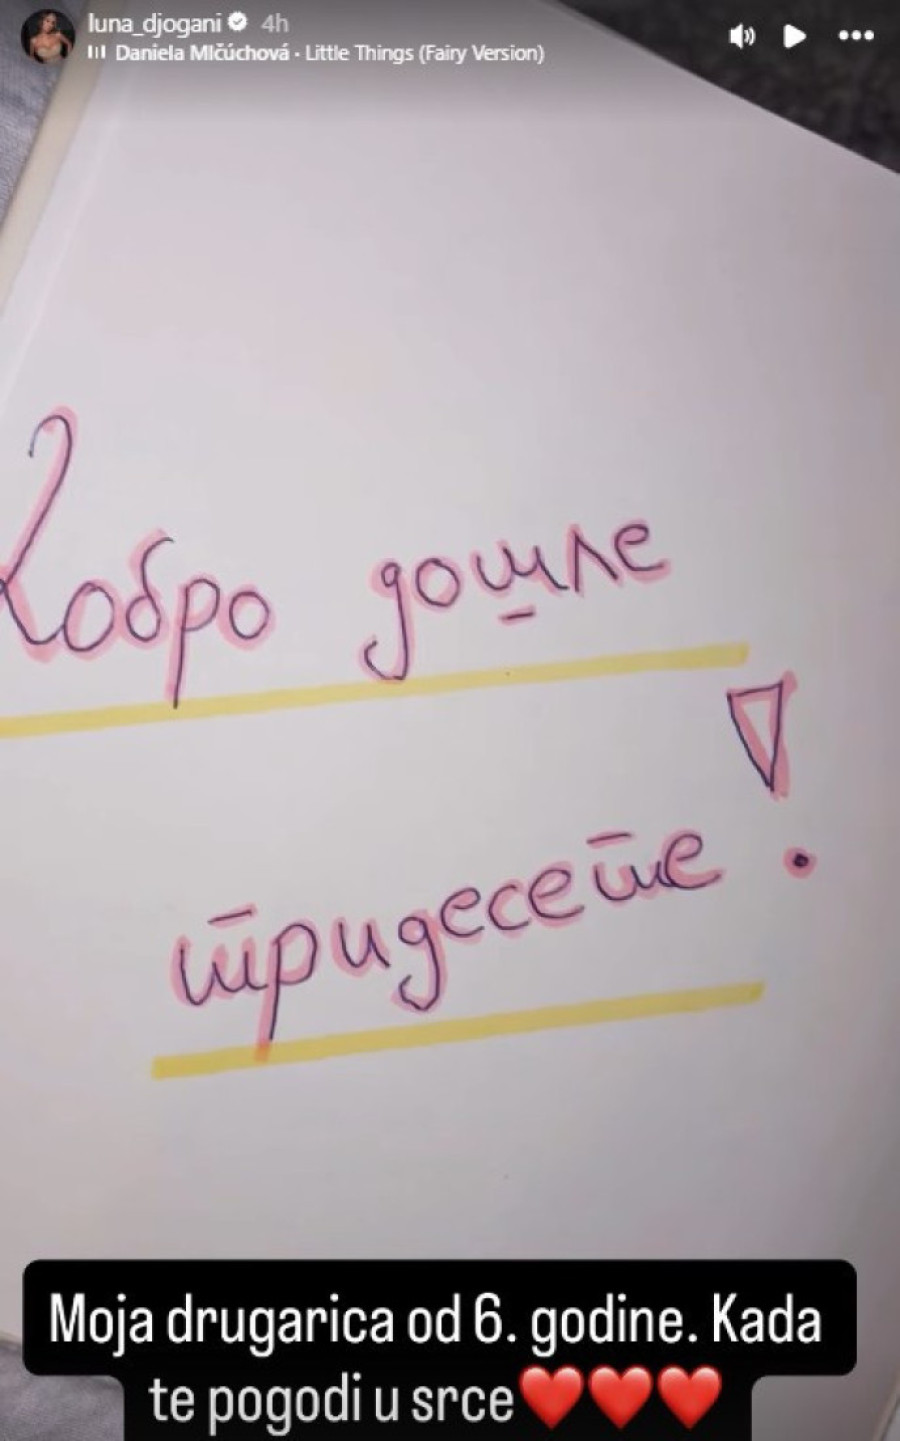 luna_djogani 4h
Daniela Mlčúchová · Little Things (Fairy Version)
Добро дошле
тридесете!
Moja drugarica od 6. godine. Kada
te pogodi u srce❤️❤️❤️